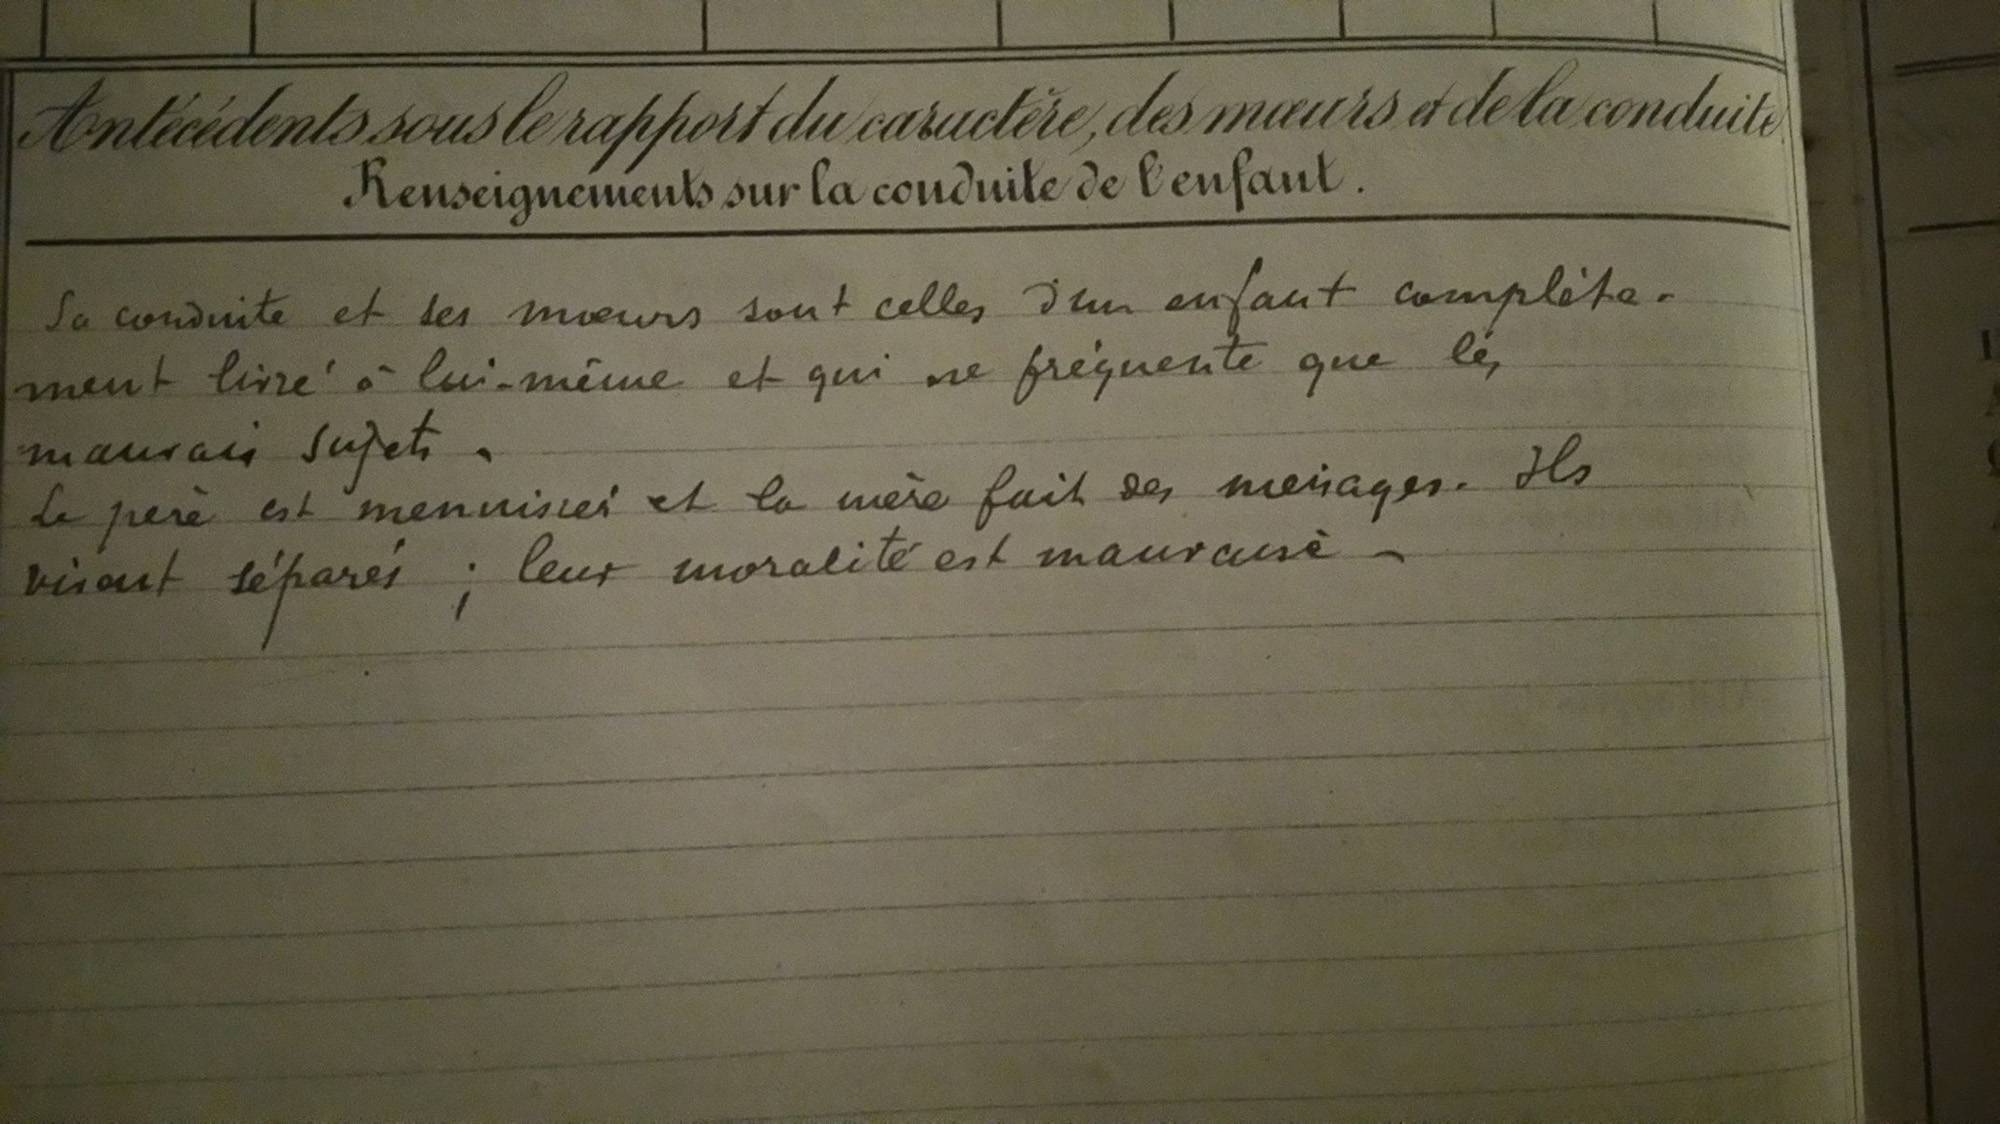 Antécédents sous le rapport du caractère, des mœurs et de la conduite.
Renseignements sur la conduite de l'enfant.
Sa conduite et ses mœurs sont celles d'un enfant complète-
ment livré à lui-même et qui ne fréquente que les
mauvais sujets.
Le père est menuisier et la mère fait des ménages. Ils
vivent séparés ; leur moralité est mauvaise -